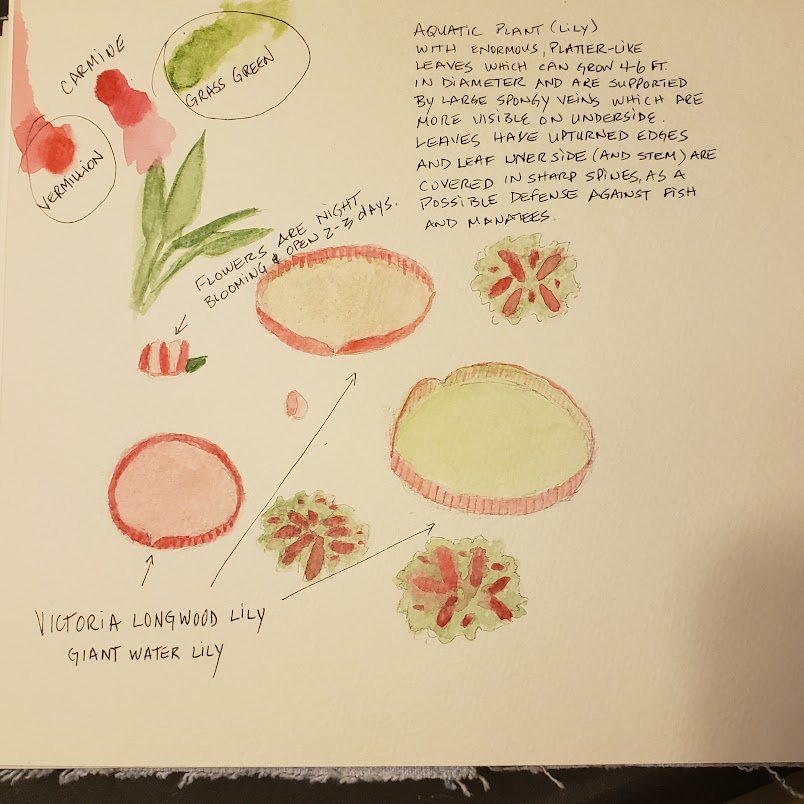 CARMINE
GRASS GREEN
VERMILLION
AQUATIC PLANT (LILY)
WITH ENORMOUS, PLATTER-LIKE
LEAVES WHICH CAN GROW 4-6 FT.
IN DIAMETER AND ARE SUPPORTED
BY LARGE SPONGY VEINS WHICH ARE
MORE VISIBLE ON UNDERSIDE.
LEAVES HAVE UPTURNED EDGES
AND LEAF UNERSIDE (AND STEM) ARE
COVERED IN SHARP SPINES, AS A
POSSIBLE DEFENSE AGAINST FISH
AND MANATEES.
FLOWERS ARE NIGHT
BLOOMING & OPEN 2-3 DAYS.
VICTORIA LONGWOOD LILY
GIANT WATER LILY